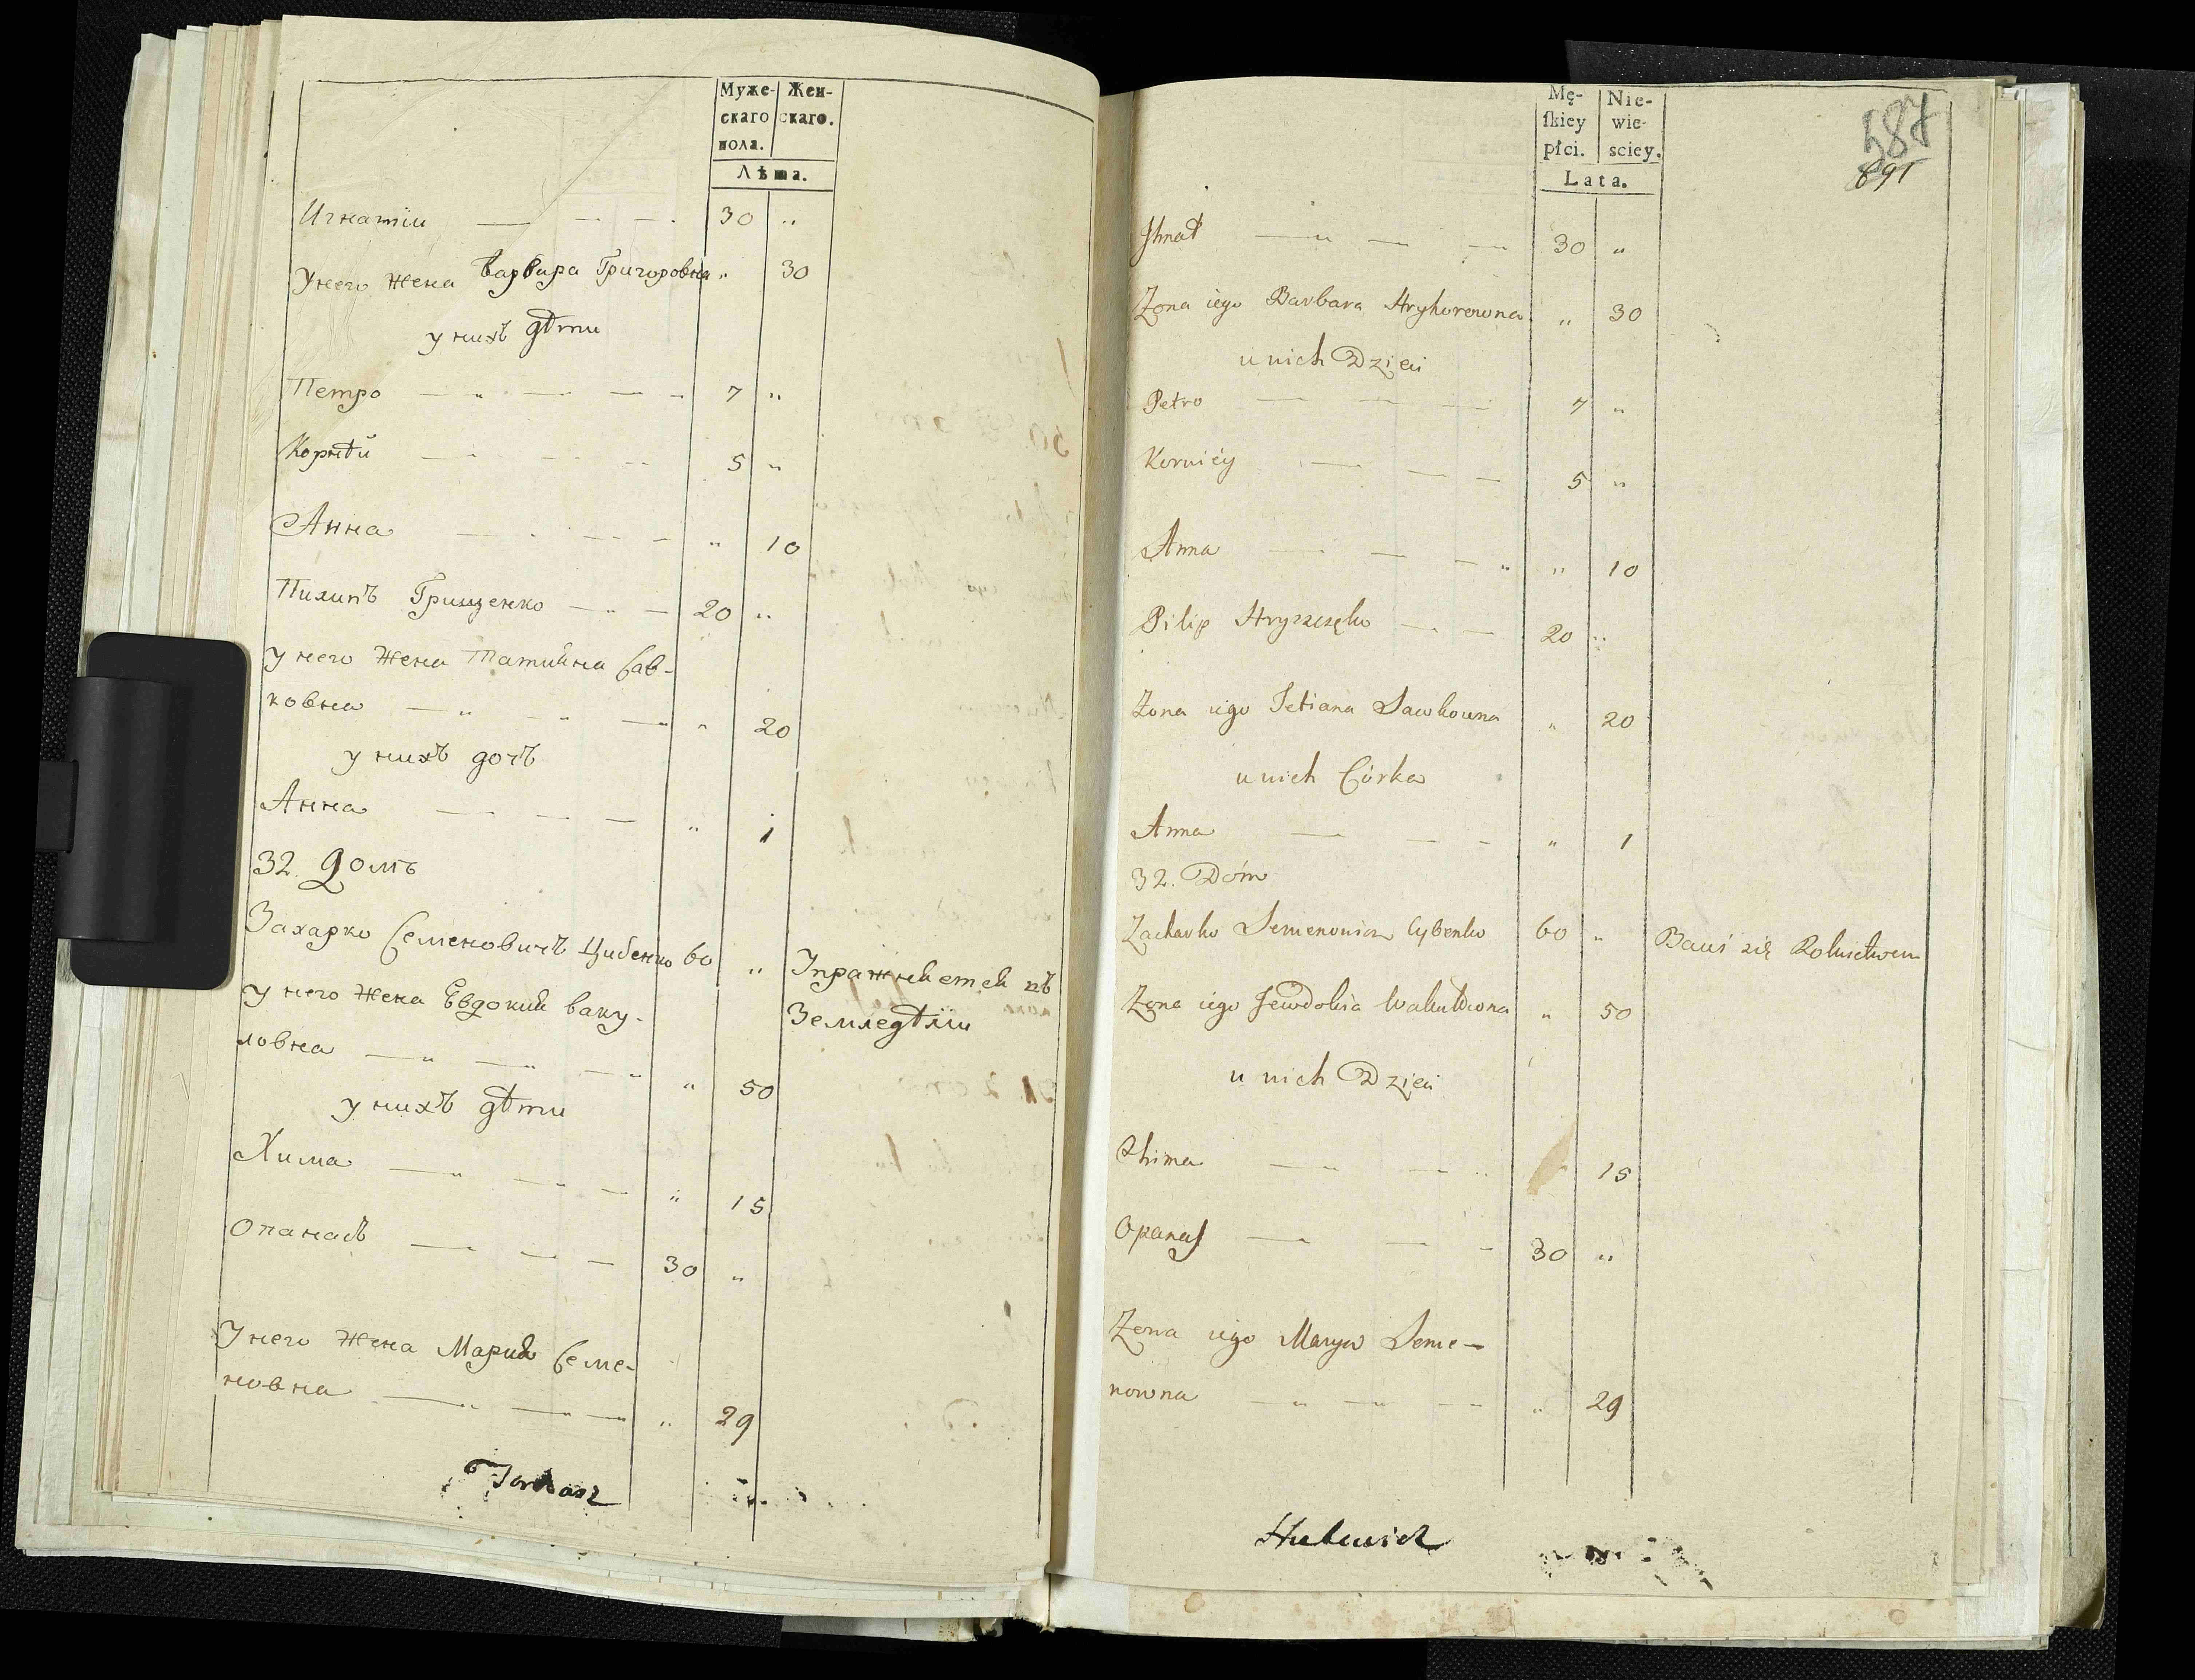 Муже- Жен-
скаго скаго.
пола.
Лѣта.
Игнатіи — — — 30 "
У него жена Варвара Григоровна " 30
у нихъ дѣти
Петро — " — — 7 "
Корнѣй — — — 5 "
Анна — — — " 10
Пилипъ Грищенко — " — 20 "
у него жена Татийна Сав-
ковна — " — " — " " 20
у нихъ дочъ
Анна — — — " 1
32. Домъ
Захарко Семеновичъ Цибенко 60 " Упражняется въ
Земледѣліи
у него жена Евдокия Ваку-
ловна — " — " — " " 50
у нихъ дѣти
Хима — " — — " 15
Опанасъ — — — 30 "
У него жена Мария Семе-
новна — " — " — " 29
Mę- Nie-
skiey wie-
płci. sciey.
Lata.
587
891
Ihnat — " — — " 30 "
Zona iego Barbara Hryhorowna " 30
u nich Dzieci
Petro — — — 7 "
Korniéy — — — 5 "
Anna — — — " " 10
Pilip Hryszczęko — — 20 "
Zona iego Tetiana Sawkowna " 20
u nich Córka
Anna — — — " 1
32. Dóm
Zacharko Semenowicz Cybenko 60 " Bawi się Rolnictwem
Zona iego Jewdokia Wakułowna " 50
u nich Dzieci
Chima — " — " 15
Opanas — — — 30 "
Zona iego Marya Seme-
nowna — " — " — " " 29